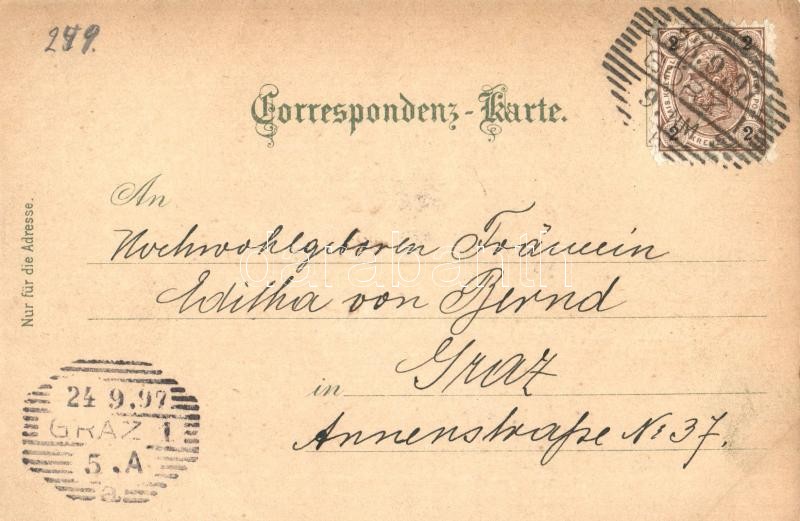 249.
Correspondenz-Karte.
2 2
2 2
An
Hochwohlgeboren Fräulein
Editha von Bernd
in Graz
Annenstraße No 37.
Nur für die Adresse.
24 9.97
GRAZ 1
5.A
a
darabanth